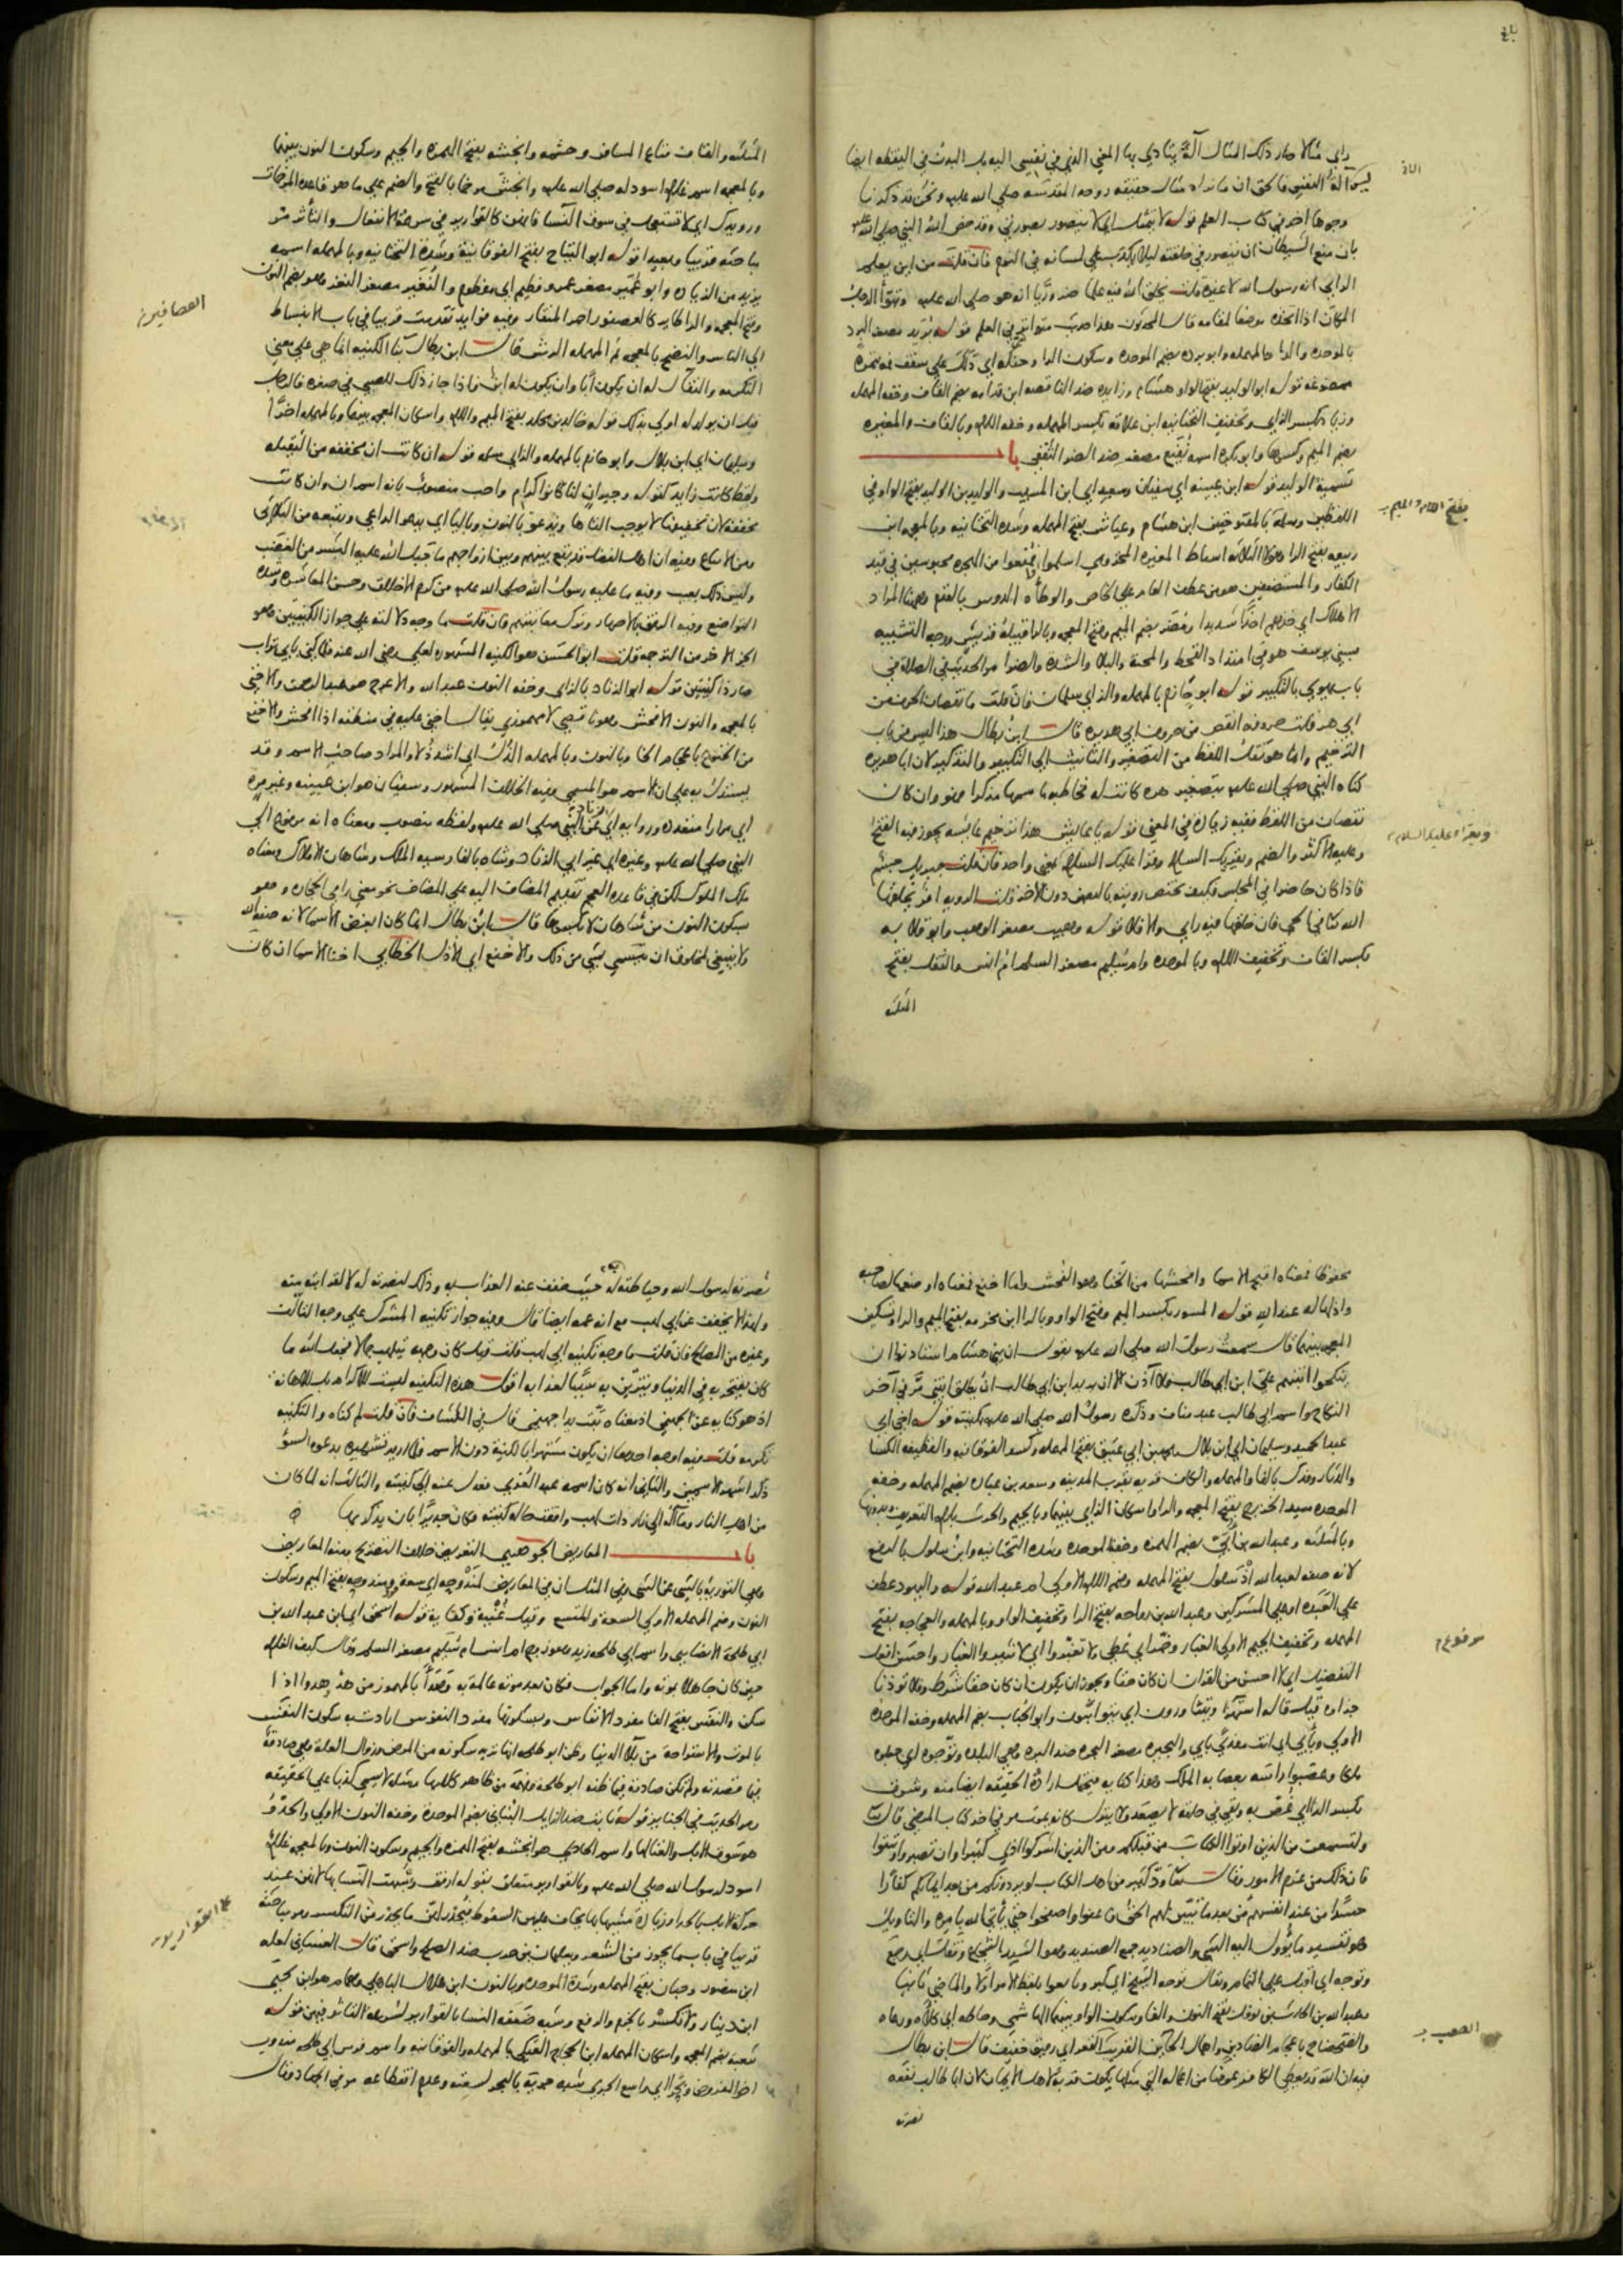 راي مثالا صار ذلك المثال آلة يتادي بها المعني الذي في نفسي اليه بل البدن في اليقظه ايضا
ليس آلة النفس فالحق ان ما يراه مثال حقيقه روحه المقدسه صلي الله عليه ونحن قد ذكرنا
وجوها اخر في كتاب العلم قوله لا يتمثل اي لا يتصور بصورتي وقد خص الله النبي صلي الله عليه
بان منع الشيطان ان يتصور في خلقته ليلا يكذب علي لسانه في النوم فان قلت من اين يعلم
الرايي انه رسول الله لا غيره قلت يخلق الله فيه علما ضروريا انه هو صلي الله عليه وتبوأ الرجل
المكان اذا اتخذه موضعا لمقامه قال المحدثون هذا حديث متواتر في العلم قوله بريد مصغر البرد
بالموحده والرا والمهمله وابو برده بضم الموحده وسكون الرا وحنكه اي دلك علي سقف فمه تمره
ممضوغه قوله ابو الوليد بفتح الواو هشام وزايده ضد الناقصه ابن قدامه بضم القاف وخفه المهمله
وزياد بكسر الزاي وتخفيف التحتانيه ابن علاقه بكسر المهمله وخفه اللام وبالقاف والمغيره
بضم الميم وكسرها وابو بكره اسمه نفيع مصغر ضد الضر الثقفي باب
تسمية الوليد قوله ابن عيينه اي سفيان وسعيد اي ابن المسيب والوليد بن الوليد بفتح الواو في
اللفظين وسلمة بالمفتوحتين ابن هشام وعياش بفتح المهمله وشده التحتانيه وبالمعجمه ابن
ربيعه بفتح الرا وهولا الثلاثه اسباط المغيره المخزومي اسلموا فمنعوا من الهجره محبوسين في قيد
الكفار والمستضعفين هو من عطف العام علي الخاص والوطأه الدوس بالقدم وههنا المراد
الاهلاك اي خذهم اخذا شديدا ومضر بضم الميم وفتح المعجمه وبالرا قبيلة قريش ووجه التشبيه
بسني يوسف هو في امتداد القحط والمحنة والبلا والشدة والضرا مر الحديث في الصلاة في
باب يهوي بالتكبير قوله ابو حازم بالمهمله والزاي سلمان فان قلت ما نقصان الحرف من
ابي هر قلت حروفه انقص من حروف ابي هريره قال ابن بطال هذا ليس من باب
الترخيم وانما هو نقل اللفظ من التصغير والتانيث الي التكبير والتذكير لان ابا هريره
كناه النبي صلي الله عليه بتصغير هره كانت له فخاطبه باسمها مذكرا فهو وان كان
نقصان من اللفظ ففيه زياده في المعني قوله يا عايش هذا ترخيم عايشه يجوز فيه الفتح
وعليه الاكثر والضم ويقريك السلام وقرا عليك السلام بمعني واحد فان قلت جبريل جسم
فاذا كان حاضرا في المجلس فكيف يختص رويته بالبعض دون الاخر قلت الرويه امر يخلقها
الله تعالي في الحي فان خلقها فيه راي والا فلا قوله وهيب مصغر الوهب وابو قلابه
بكسر القاف وتخفيف اللام وبالموحده وام سليم مصغر السلم ام انس والثقل بفتح
المثلثه
بفتح اللام والميم
ويقرا عليك السلام
المثلثه والقاف متاع المسافر وحشمه وانجشه بفتح الهمزه والجيم وسكون النون بينهما
وبالمعجمه اسم غلام اسود له صلي الله عليه وانجش مرخما بالفتح والضم علي ما هو قاعده المرخمات
ورويدك اي لا تستعجل في سوق النسا فانهن كالقوارير في سرعة الانفعال والتأثر مر
مباحثه قريبا وبعيدا قوله ابو التياح بفتح الفوقانية وشدة التحتانيه وبالمهمله اسمه
يزيد من الزياده وابو عمير مصغر عمر وفطيم اي مفطوم والنغير مصغر النغر وهو بضم النون
وفتح المعجمه والرا طاير كالعصفور احمر المنقار وفيه فوايد تقدمت قريبا في باب الانبساط
الي الناس والنضح بالمعجمه ثم المهمله الرش قال ابن بطال بنا الكنيه انما هي علي معني
التكرمه والتفاؤل له ان يكون ابا وان يكون له ابن فاذا جاز ذلك للصبي في صغره فالرجل
قبل ان يولد له اولي بذلك قوله خالد بن مخلد بفتح الميم واللام واسكان المعجمه بينهما وبالمهمله اخرا
وسليمان اي ابن بلال وابو حازم بالمهمله والزاي سلمه قوله ان كانت ان مخففه من الثقيله
ولفظ كانت زايد كقوله وجيران لنا كانوا كرام واحب منصوب بانه اسم ان وان كانت
مخففة لان تخفيفها لا يوجب الغاها ويدعو بالنون وباليا اي يدعو الداعي
العصافير
وليس ذلك بعيب وفيه ما عليه رسول الله صلي الله عليه من كرم الاخلاق وحسن المعاشره وشدة
التواضع وفيه الرفق بالاصهار وترك معاتبتهم فان قلت ما وجه دلالته علي جواز الكنيتين وهو
الجزء الاخر من الترجمه قلت ابو الحسن هو الكنيه المشهوره لعلي رضي الله عنه فلما كني بابي تراب
صار ذا كنيتين قوله ابو الزناد بالزاي وخفه النون عبد الله والاعرج هو عبد الرحمن والاخني
بالمعجمه والنون الافحش وهو ناقصي لا مهموزي يقال اخني عليه في منطقه اذا افحش والاخنع
من الخنوع باعجام الخا وبالنون وبالمهمله الذل اي اشد ذلا والمراد صاحب الاسم وقد
يستدل به علي ان الاسم هو المسمي وفيه الخلاف المشهور وسفيان هو ابن عيينه وغير مره
اي مرارا متعدده ورواية اي عن النبي صلي الله عليه ولفظه منصوب ومعناه انه مرفوع الي
النبي صلي الله عليه وغيره اي غير ابي الزناد وشاه بالفارسيه الملك وشاهان الاملاك ومعناه
ملك الملوك لكن في قاعده العجم تقديم المضاف اليه علي المضاف نحو معني رامي الحجاره وهو
بسكون النون من شاهان لا بكسرها قال ابن بطال انما كان ابغض الاسما لانه صفة الله
ولا ينبغي لمخلوق ان يتسمي بشي من ذلك والاخنع اي الاذل الخطابي اخنا الاسما ان كان
محفوظا فمعناه اقبح الاسما وافحشها من الخنا وهو الفحش واما اخنع فمعناه اوضعها لصاحبه
واذلها له عند الله قوله المسور بكسر الميم وفتح الواو وبالرا ابن مخرمه بفتح الميم والرا وتسكين
المعجمه بينهما قال سمعت رسول الله صلي الله عليه يقول ان بني هشام استاذنوا ان
ينكحوا ابنتهم علي ابن ابي طالب فلا آذن الا ان يريد ابن ابي طالب ان يطلق ابنتي مر في آخر
النكاح واسم ابي طالب عبد مناف وذكره رسول الله صلي الله عليه بكنيته قوله اخي اي
عبد الحميد وسليمان اي ابن بلال ومحمد بن ابي عتيق بفتح المهمله وكسر الفوقانيه والقطيفه الكسا
والدثار وفدك بالفا والمهمله والكاف قريه بقرب المدينه وسعد بن عباده بضم المهمله وخفه
الموحده سيد الخزرج بفتح المعجمه والرا واسكان الزاي بينهما وبالجيم والحرث بلام التعريف وبدونها
وبالمثلثه وعبد الله بن ابي بضم الهمزه وخفة الموحده وشده التحتانيه وابن سلول بالرفع
لانه صفه لعبد الله اذ سلول بفتح المهمله وضم اللام الاولي ام عبد الله قوله واليهود عطف
علي العبده او علي المشركين وعبد الله بن رواحه بفتح الرا وتخفيف الواو وبالمهمله والعجاجه بفتح
المهمله وتخفيف الجيم الاولي الغبار وخمر اي غطي ولا تغبروا اي لا تثيروا الغبار واحسن افعل
التفضيل اي لا احسن من القران ان كان حقا ويجوز ان يكون ان كان حقا شرط وفلا توذنا
جزاوه قيل قاله استهزاء ويتثاورون اي يتواثبون وابو الحباب بضم المهمله وخفه الموحده
الاولي وبأبي اي انت مفدي بابي والبحيره مصغر البحره ضد البره وهي البلده وتوجوه اي جعلوه
ملكا وعصبوا راسه بعصابه الملك وهذا كنايه ويحتمل اراده الحقيقه ايضا منه وشرق
بكسر الرا اي غص به وبقي في حلقه لا يصعد ولا ينزل كانه يموت مر في اخر كتاب المرضي قال تعالي
ولتسمعن من الذين اوتوا الكتاب من قبلكم ومن الذين اشركوا اذي كثيرا وان تصبروا وتتقوا
فان ذلك من عزم الامور وقال تعالي ود كثير من اهل الكتاب لو يردونكم من بعد ايمانكم كفارا
حسدا من عند انفسهم من بعد ما تبين لهم الحق فاعفوا واصفحوا حتي يأتي الله بامره والتاويل
هو تفسير ما يؤول اليه الشي والصناديد جمع الصنديد وهو السيد الشجاع وقفل اي رجع
وتوجه اي اقبل علي التمام ويقال توجه الشيخ اي كبر وبايعوا بلفظ الامر اولا والماضي ثانيا
وعبد الله بن الحارث بن نوفل بفتح النون والفا وسكون الواو بينهما الهاشمي وحاطه اي كلاه ورعاه
والضحضاح باعجام الضادين واهمال الحائين القريب القعر اي رقيق خفيف قال ابن بطال
فيه ان الله قد يعطي الكافر عوضا من اعماله التي مثلها يكون قربة لاهل الايمان لان ابا طالب نفعه
نصرته
مرفوع
نصرته لرسول الله وحياطته له حيث خفف عنه العذاب به وذلك لنصرته له لا لقرابته منه
ولهذا لا يخفف عن ابي لهب مع انه عمه ايضا قال وفيه جواز تكنيه المشرك علي وجه التألف
وغيره من المصالح فان قلت ما وجه تكنيه ابي لهب قلت قيل كان وجهه يتلهب جمالا فجعل الله ما
كان يفتخر به في الدنيا ويتزين به سببا لعذابه اقول هذه التكنيه ليست للاكرام بل للاهانة
اذ هو كنايه عن الجهنمي اذ معناه تبت يدا جهنمي قال في الكشاف فان قلت لم كناه والتكنيه
تكرمه قلت فيه اوجه احدها ان يكون مشتهرا بالكنية دون الاسم فلما اريد تشهيره بدعوه السوء
ذكر اشهر الاسمين والثاني انه كان اسمه عبد العزي فعدل عنه الي كنيته والثالث انه لما كان
من اهل النار ومآله الي نار ذات لهب وافقت حاله كنيته وكان جديرا بان يذكر بها
باب المعاريض الجوهري التعريض خلاف التصريح ومنه المعاريض
وهي التوريه بالشي عن الشي وفي المثل ان في المعاريض لمندوحه اي سعه ومندوحه بفتح الميم وسكون
النون وضم المهمله الاولي السعة والمتسع وقيل غنية وكفاية قوله اسحق اي ابن عبد الله بن
ابي طلحة الانصاري واسم ابي طلحه زيد وهو زوج ام انس ام سليم مصغر السلم وقال كيف الغلام
حين كان جاهلا بموته واما الجواب فكان بعد موته عالمة به وهدأ بالمهموز من هدأ هدوءا اذا
سكن والنفس بفتح الفا مفرد الانفاس وبسكونها مفرد النفوس ارادت به سكون النفس
بالموت والاستراحة من بلاء الدنيا وظن ابو طلحه انها تريد سكونه من المرض وزوال العلة وهي صادقة
فيما قصدته ولم تكن صادقه فيما ظنه ابو طلحه وفهمه من ظاهر كلامها ومثله لا يسمي كذبا علي الحقيقه
ومر الحديث في الجنايز قوله ثابت ضد الزايل البناني بضم الموحدة وخفه النون الاولي والحدو
هو سوق الابل والغنا لها واسم الحادي هو انجشه بفتح الهمزه والجيم وسكون النون وبالمعجمه غلام
اسود لرسول الله صلي الله عليه وبالقوارير متعلق بقوله ارفق وشبهت النسا بها لانهن عند
حركة الابل بالحدا وزيادة مشيها بها يخاف عليهن السقوط فيحذر لهن ما يحذر من التكسر ومر مباحثه
قريبا في باب ما يجوز من الشعر وسليمان بن حرب ضد الصلح واسحق قال الغساني لعله
ابن منصور وحبان بفتح المهمله وشدة الموحده وبالنون ابن هلال الباهلي وهمام هو ابن يحيي
ابن دينار ولا تكسر بالجزم والرفع وشبه ضعفه النسا بالقوارير لسرعه التاثر فيهن قوله
شعبه بضم المعجمه واسكان المهمله ابن الحجاج العتكي بالمهمله والفوقانيه واسم فرس ابي طلحه مندوب
القوارير